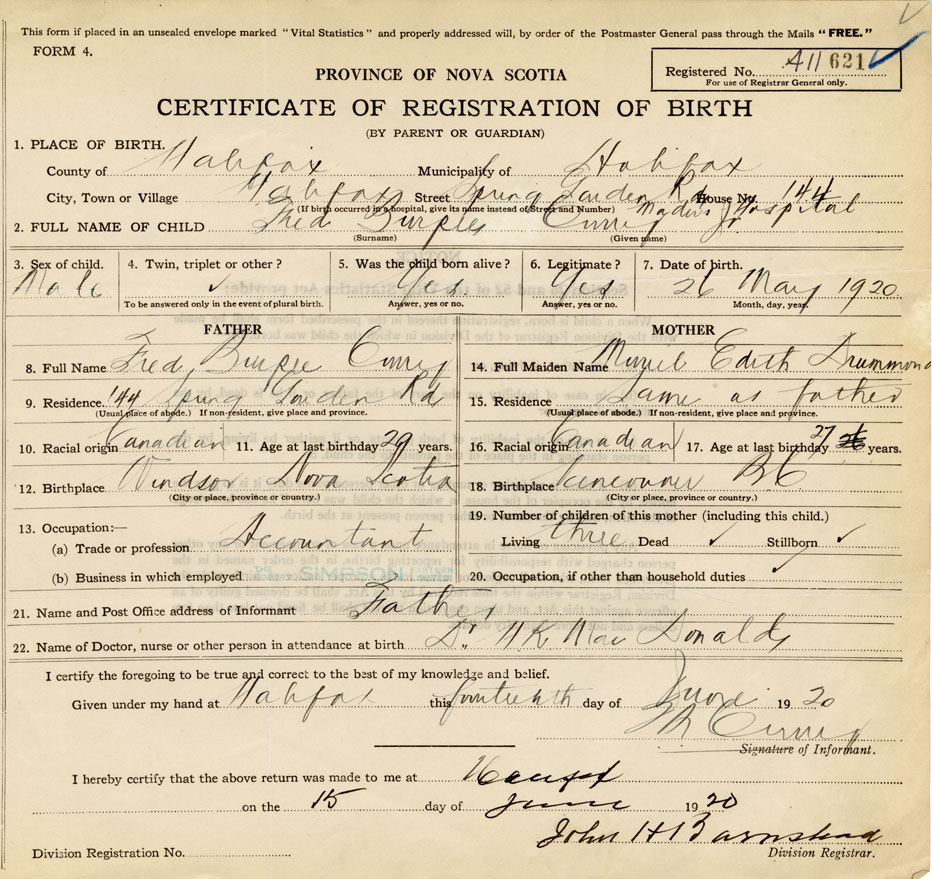 This form if placed in an unsealed envelope marked "Vital Statistics" and properly addressed will, by order of the Postmaster General pass through the Mails "FREE."
FORM 4.
Registered No. A11 621
For use of Registrar General only.
PROVINCE OF NOVA SCOTIA
CERTIFICATE OF REGISTRATION OF BIRTH
(BY PARENT OR GUARDIAN)
1. PLACE OF BIRTH.
County of Halifax Municipality of Halifax
City, Town or Village Halifax Street Spring Garden Rd House No. 144
(If birth occurred in a hospital, give its name instead of Street and Number) Hospital
2. FULL NAME OF CHILD Fred Burpee Curry
(Surname) (Given name)
3. Sex of child. 4. Twin, triplet or other? 5. Was the child born alive? 6. Legitimate? 7. Date of birth.
Male ✓ Yes. Yes 26 May 1920
To be answered only in the event of plural birth. Answer, yes or no. Answer, yes or no. Month, day, year.
FATHER MOTHER
8. Full Name Fred Burpee Curry 14. Full Maiden Name Muriel Edith Drummond
9. Residence 144 Spring Garden Rd 15. Residence Same as father
(Usual place of abode.) If non-resident, give place and province. (Usual place of abode.) If non-resident, give place and province.
10. Racial origin Canadian 11. Age at last birthday 29 years. 16. Racial origin Canadian 17. Age at last birthday 27 years.
12. Birthplace Windsor Nova Scotia 18. Birthplace Vancouver BC
(City or place, province or country.) (City or place, province or country.)
13. Occupation:— 19. Number of children of this mother (including this child.)
(a) Trade or profession Accountant Living three Dead ✓ Stillborn ✓
(b) Business in which employed 20. Occupation, if other than household duties ✓
21. Name and Post Office address of Informant Father
22. Name of Doctor, nurse or other person in attendance at birth Dr. H K MacDonald
I certify the foregoing to be true and correct to the best of my knowledge and belief.
Given under my hand at Halifax this fourteenth day of June 1920
Curry
Signature of Informant.
I hereby certify that the above return was made to me at
on the 15 day of June 1920
John H Barnstead
Division Registration No. Division Registrar.